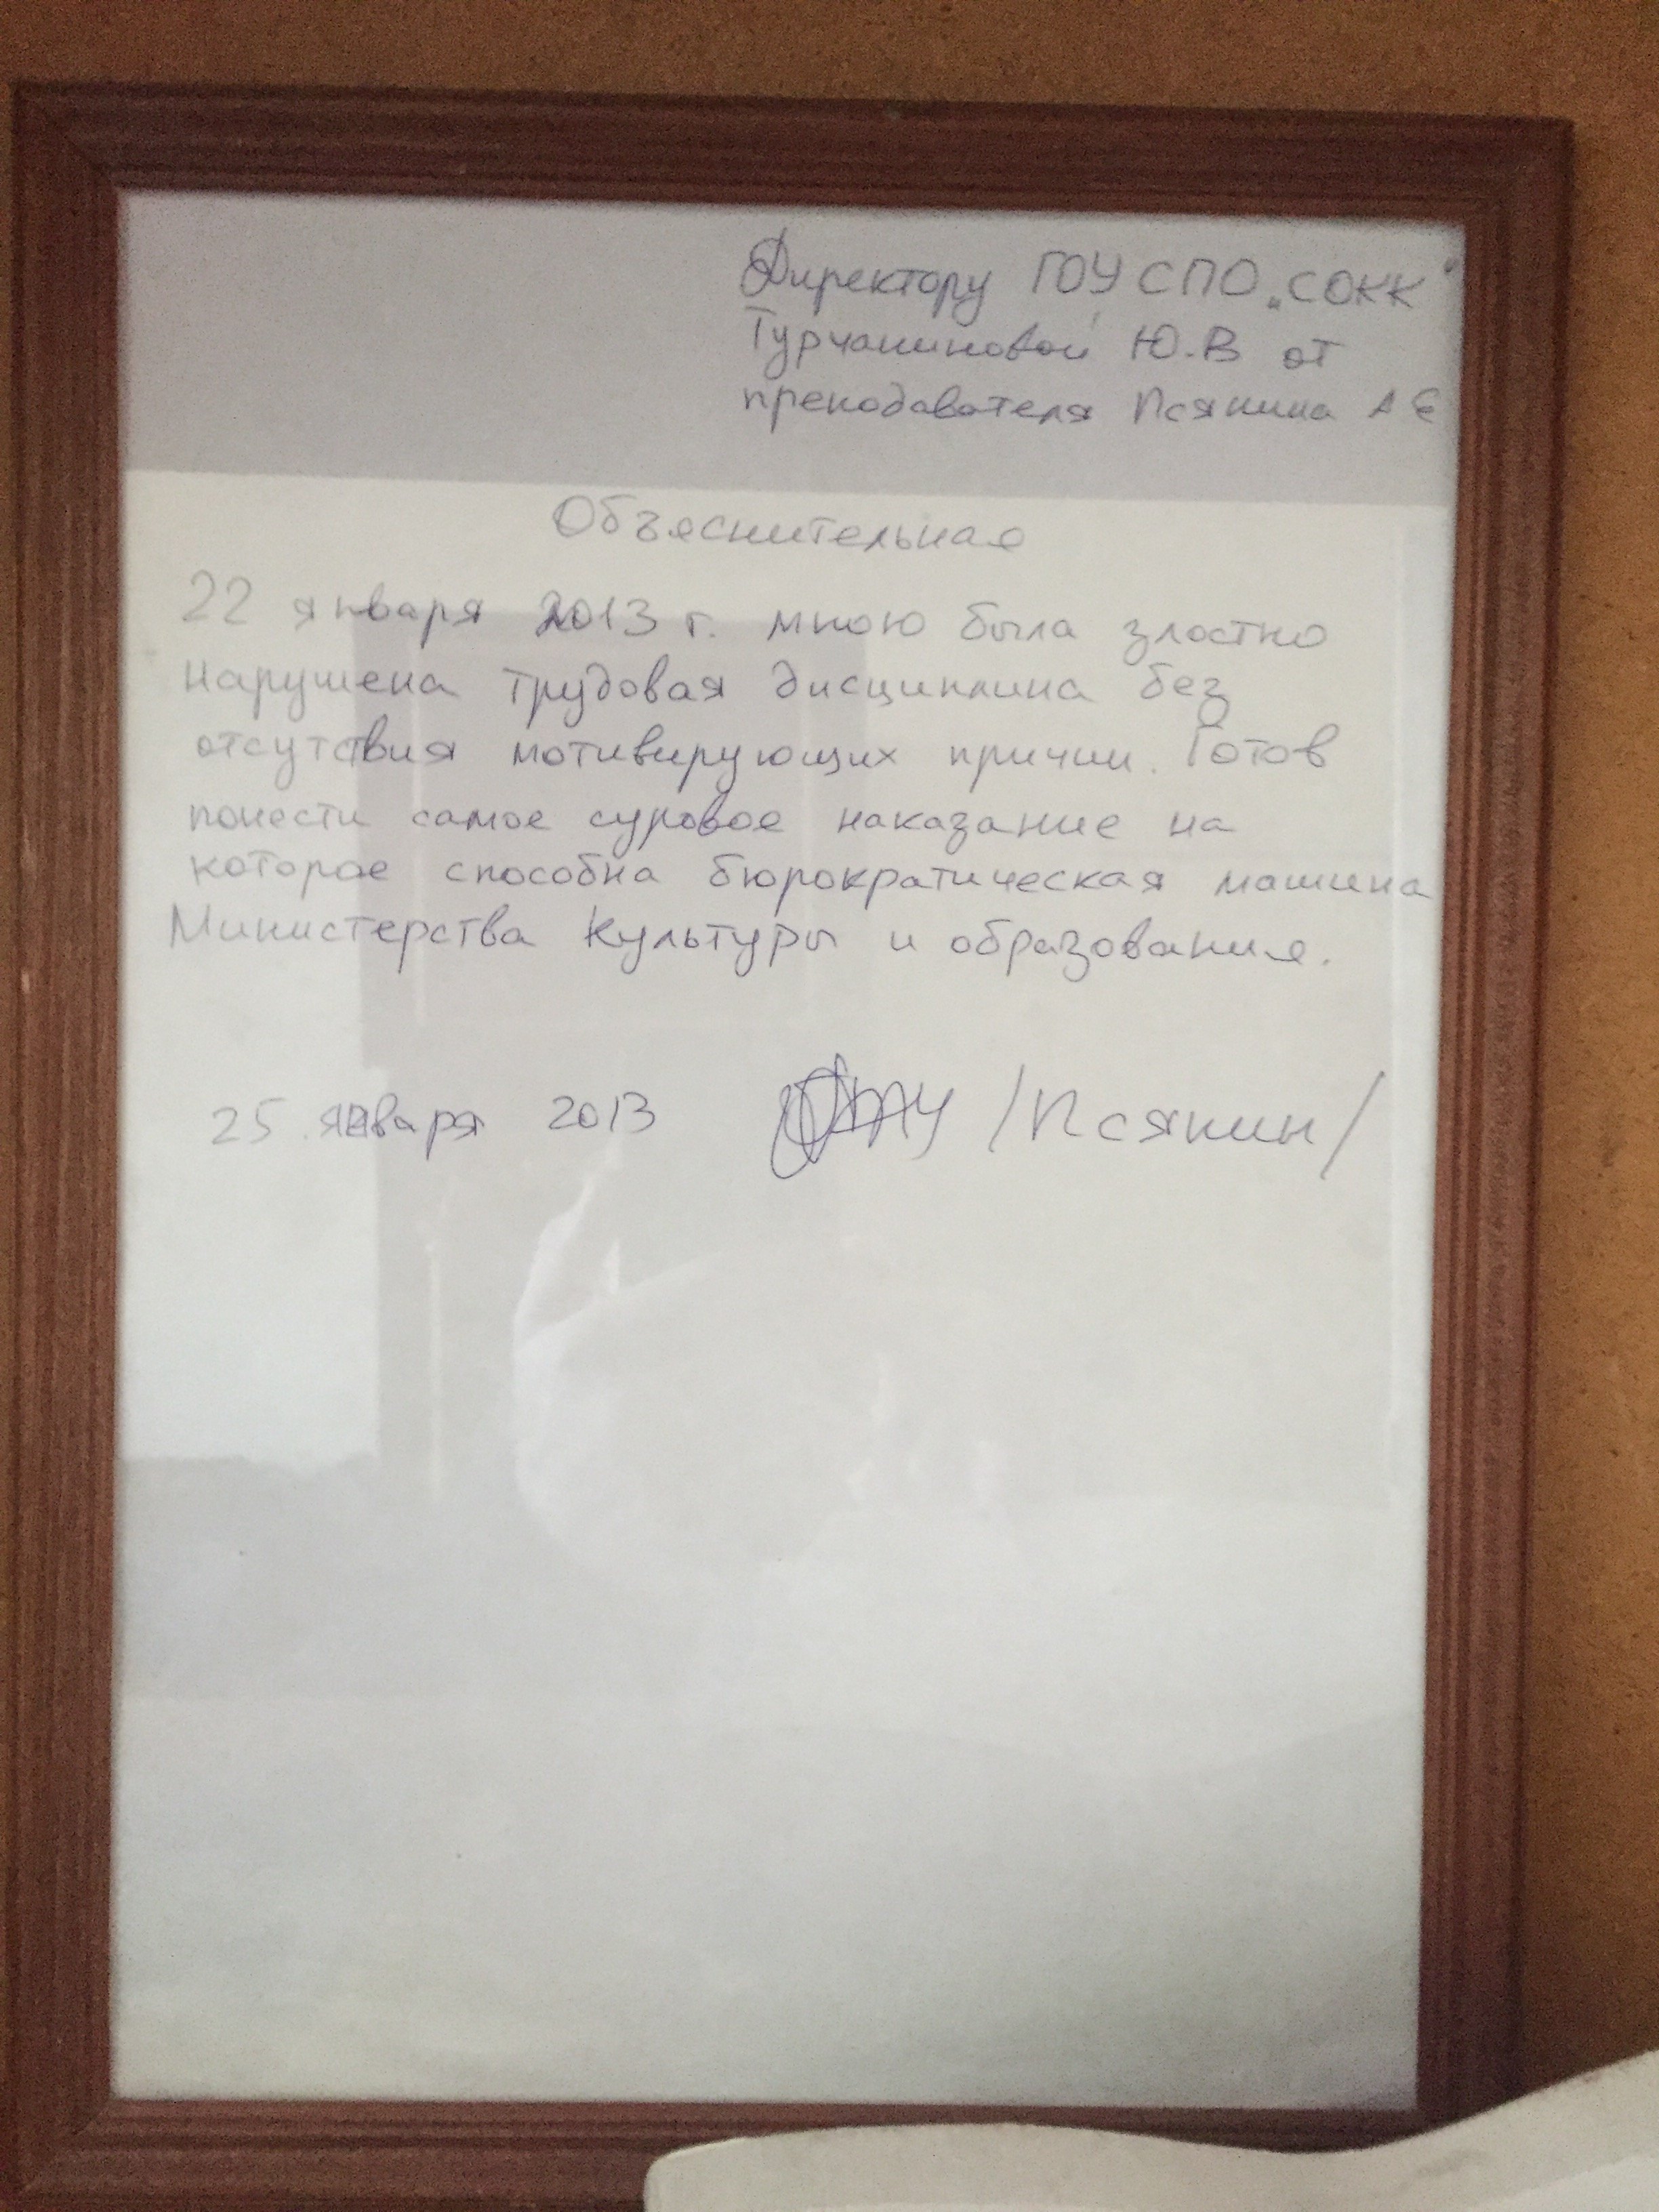 Директору ГОУ СПО „СОКК"
Турчаниновой Ю.В от
преподавателя Псянина А Е
Объяснительная
22 января 2013 г. мною была злостно
нарушена трудовая дисциплина без
отсутствия мотивирующих причин. Готов
понести самое суровое наказание на
которое способна бюрократическая машина
Министерства Культуры и образования.
25 января 2013 /Псянин/